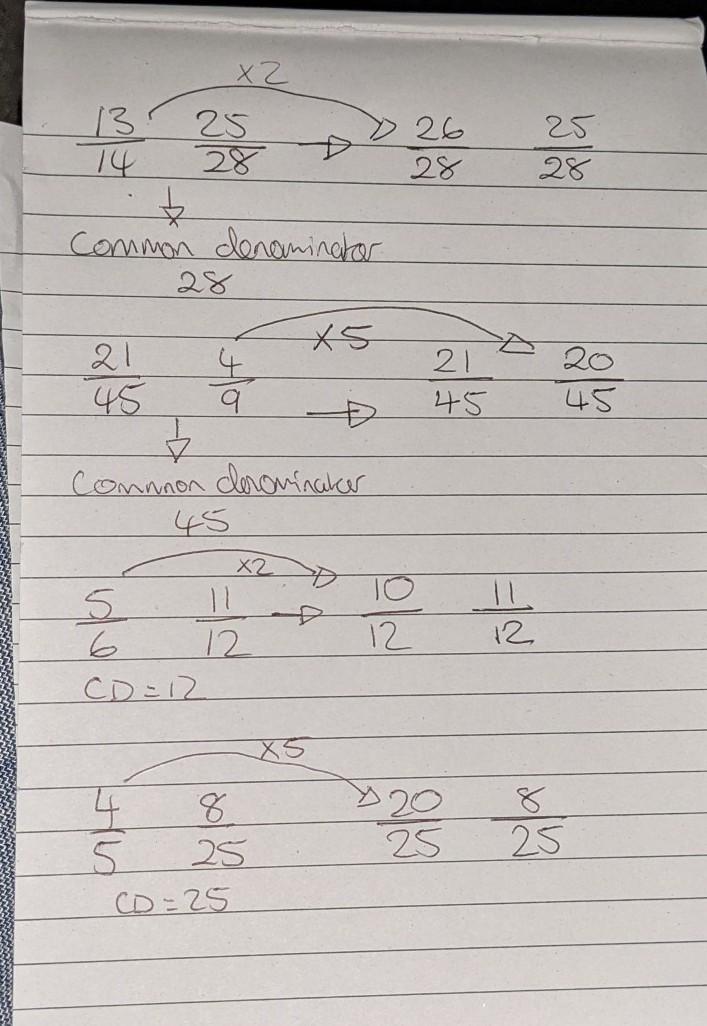 ×2
13/14 25/28 → 26/28 25/28
Common denominator
28
×5
21/45 4/9 → 21/45 20/45
Common denominator
45
×2
5/6 11/12 → 10/12 11/12
CD = 12
×5
4/5 8/25 20/25 8/25
CD = 25